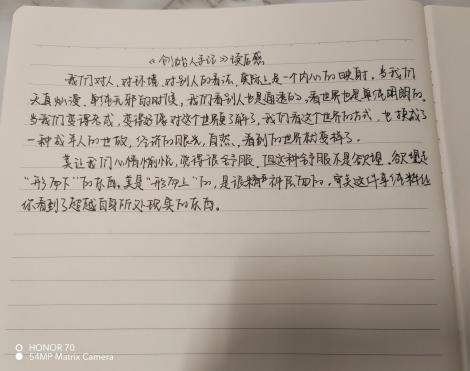 《创始人手记》读后感
我们对人、对环境、对别人的看法，实际上是一个内心的映射，当我们
天真烂漫、单纯无邪的时候，我们看别人也是通透的，看世界也是单纯明朗的。
当我们变得成，变得对这个世界更了解了，我们看这个世界的方式，也换成了
一种成年人的世故，经济的眼光，自然、看到的世界就变得了
美让我们心情愉悦，觉得很舒服，但这种舒服不是欲望，欲望是
"形而下"的东西，美是"形而上"的，是很精神层面的，美这件事情
你看到了超越自身所处现实的东西。
HONOR 70
54MP Matrix Camera